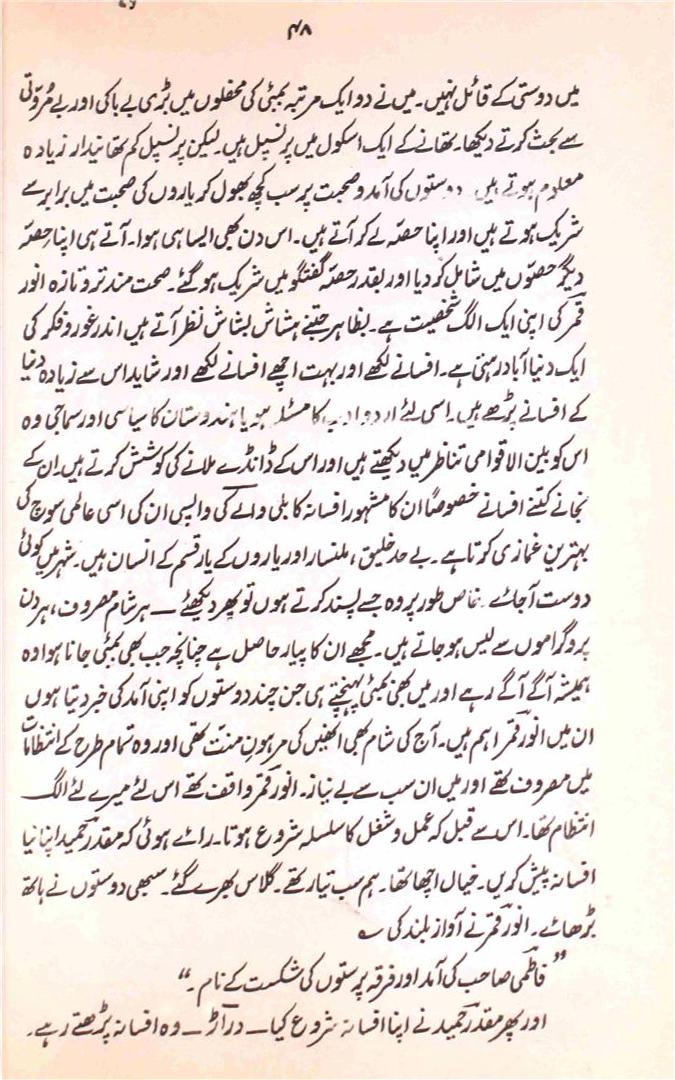 ۴۸
میں دوستی کے قائل نہیں۔ میں نے دو ایک مرتبہ بمبئی کی محفلوں میں بڑی بے باکی اور بے مُروّتی
سے بحث کرتے دیکھا۔ تھانے کے ایک اسکول میں پرنسپل ہیں۔ لیکن پرنسپل کم تھانیدار زیادہ
معلوم ہوتے ہیں۔ دوستوں کی آمد و صحبت پر سب کچھ بھول کر یاروں کی صحبت میں برابر سے
شریک ہوتے ہیں اور اپنا حصہ لے کر آتے ہیں۔ اس دن بھی ایسا ہی ہوا۔ آتے ہی اپنا حصہ
دیگر حصّوں میں شامل کر دیا اور بقدر حصّہ گفتگو میں شریک ہو گئے۔ صحت مند تر و تازہ انور
قمر کی اپنی ایک الگ شخصیت ہے۔ بظاہر جتنے ہشاش بشاش نظر آتے ہیں اندر غور و فکر کی
ایک دنیا آباد رہتی ہے۔ افسانے لکھے اور بہت اچھے افسانے لکھے اور شاید اس سے زیادہ دنیا
کے افسانے پڑھے ہیں۔ اسی لئے اردو ادب کا مسئلہ ہو یا ہندوستان کا سیاسی اور سماجی وہ
اس کو بین الاقوامی تناظر میں دیکھتے ہیں اور اس کے ڈانڈے ملانے کی کوشش کرتے ہیں۔ ان کے
نجانے کتنے افسانے خصوصاً ان کا مشہور افسانہ کابلی والے کی واپسی ان کی اسی عالمی سوچ کی
بہترین غمازی کرتا ہے۔ بے حد خلیق، ملنسار اور یاروں کے یار قسم کے انسان ہیں۔ شہر میں کوئی
دوست آ جائے خاص طور پر وہ جسے پسند کرتے ہوں تو پھر دیکھئے ــ ہر شام مصروف، ہر دن
پروگراموں سے لیس ہو جاتے ہیں۔ مجھے ان کا پیار حاصل ہے چنانچہ جب بھی بمبئی جانا ہوا وہ
ہمیشہ آگے آگے رہے اور میں بھی بمبئی پہنچتے ہی جن چند دوستوں کو اپنی آمد کی خبر دیتا ہوں
ان میں انور قمر اہم ہیں۔ آج کی شام بھی انھیں کی مرہونِ منت تھی اور وہ تمام طرح کے انتظامات
میں مصروف تھے اور میں ان سب سے بے نیاز۔ انور قمر واقف تھے اس لئے میرے لئے الگ
انتظام تھا۔ اس سے قبل کہ عمل و شغل کا سلسلہ شروع ہوتا۔ رائے ہوئی کہ مقدر حمید اپنا نیا
افسانہ پیش کریں۔ خیال اچھا تھا۔ ہم سب تیار تھے۔ گلاس بھرے گئے۔ سبھی دوستوں نے ہاتھ
بڑھائے۔ انور قمر نے آواز بلند کی ؎
”فاطمی صاحب کی آمد اور فرقہ پرستوں کی شکست کے نام۔“
اور پھر مقدر حمید نے اپنا افسانہ شروع کیا ــ دراڑ ــ وہ افسانہ پڑھتے رہے۔